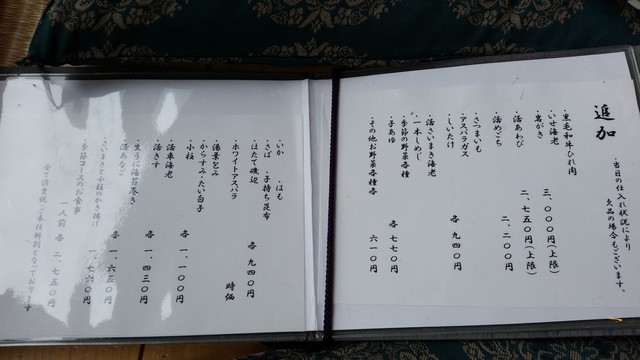 追加
当日の仕入れ状況により
欠品の場合もございます。
・黒毛和牛ひれ肉
・いせ海老 三、〇〇〇円(上限)
・岩がき
・活あわび 二、七五〇円(上限)
・活めごち 二、二〇〇円
・さつまいも
・アスパラガス
・しいたけ 各 九四〇円
・活さいまき海老
・一本しめじ
・季節の野菜各種
・子あゆ 各 七七〇円
・その他お野菜各種 各 六一〇円
・いか ・はも
・さば ・子持ち昆布
・はたて磯辺 各 九四〇円
・ホワイトアスパラ 時価
・湯葉包み
・からすみ・たい白子
・小柱 各 一、一〇〇円
・活車海老
・活きす 各 一、四三〇円
・生うに海苔巻き
・活あなご 各 一、六五〇円
・さいまきと小柱のかき揚げ 一、七六〇円
・季節コースのお食事
一人前 各 二、七五〇円
全て消費税・ご奉仕料別となっております